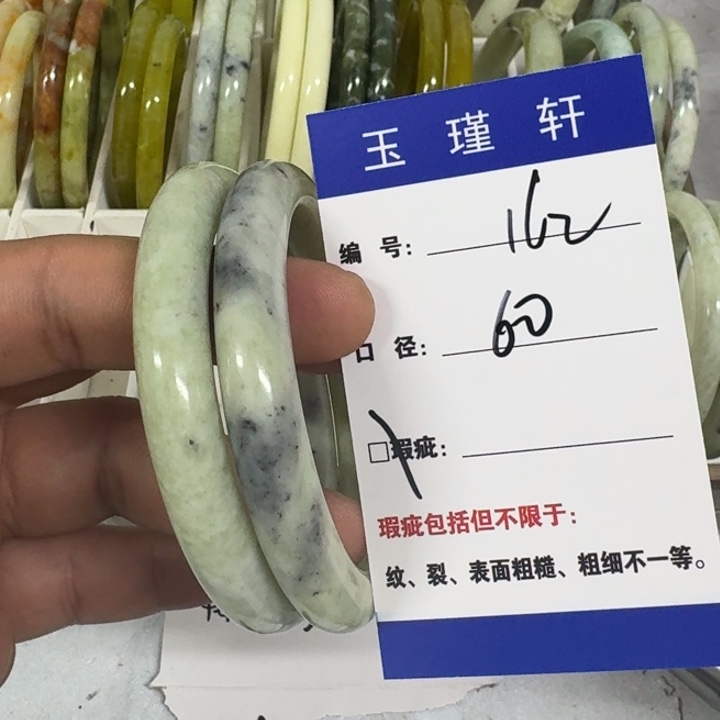 玉瑾轩
编号: 162
口径: 60
□瑕疵:
瑕疵包括但不限于:
纹、裂、表面粗糙、粗细不一等。